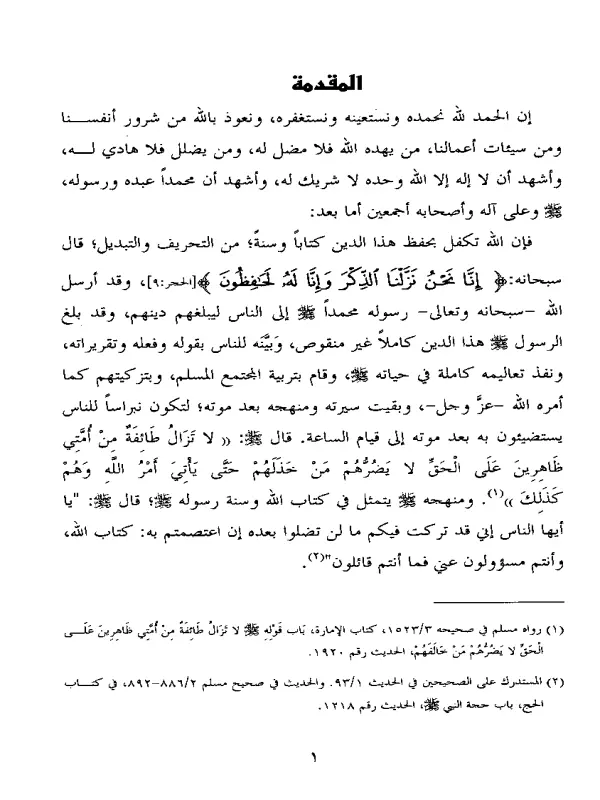 المقدمة
إن الحمد لله نحمده ونستعينه ونستغفره، ونعوذ بالله من شرور أنفسنا
ومن سيئات أعمالنا، من يهده الله فلا مضل له، ومن يضلل فلا هادي له،
وأشهد أن لا إله إلا الله وحده لا شريك له، وأشهد أن محمداً عبده ورسوله،
ﷺ وعلى آله وأصحابه أجمعين أما بعد:
فإن الله تكفل بحفظ هذا الدين كتاباً وسنة؛ من التحريف والتبديل؛ قال
سبحانه: ﴿ إِنَّا نَحْنُ نَزَّلْنَا ٱلذِّكْرَ وَإِنَّا لَهُۥ لَحَٰفِظُونَ ﴾[الحجر:٩]، وقد أرسل
الله -سبحانه وتعالى- رسوله محمداً ﷺ إلى الناس ليبلغهم دينهم، وقد بلغ
الرسول ﷺ هذا الدين كاملاً غير منقوص، وَبيَّنَه للناس بقوله وفعله وتقريراته،
ونفذ تعاليمه كاملة في حياته ﷺ، وقام بتربية المجتمع المسلم، وبتزكيتهم كما
أمره الله -عزَّ وجل-، وبقيت سيرته ومنهجه بعد موته؛ لتكون نبراساً للناس
يستضيئون به بعد موته إلى قيام الساعة. قال ﷺ: « لا تَزَالُ طَائِفَةٌ مِنْ أُمَّتِي
ظَاهِرِينَ عَلَى الْحَقِّ لا يَضُرُّهُمْ مَنْ خَذَلَهُمْ حَتَّى يَأْتِيَ أَمْرُ اللَّهِ وَهُمْ
كَذَلِكَ »(١). ومنهجه ﷺ يتمثل في كتاب الله وسنة رسوله ﷺ؛ قال ﷺ: "يا
أيها الناس إني قد تركت فيكم ما لن تضلوا بعده إن اعتصمتم به: كتاب الله،
وأنتم مسؤولون عني فما أنتم قائلون"(٢).
(١) رواه مسلم في صحيحه ١٥٢٣/٣، كتاب الإمارة، بَاب قَوْلِهِ ﷺ لا تَزَالُ طَائِفَةٌ مِنْ أُمَّتِي ظَاهِرِينَ عَلَى
الْحَقِّ لا يَضُرُّهُمْ مَنْ خَالَفَهُمْ، الحديث رقم ١٩٢٠.
(٢) المستدرك على الصحيحين في الحديث ٩٣/١. والحديث في صحيح مسلم ٨٨٦/٢-٨٩٢، في كتاب
الحج، باب حجة النبي ﷺ، الحديث رقم ١٢١٨.
١